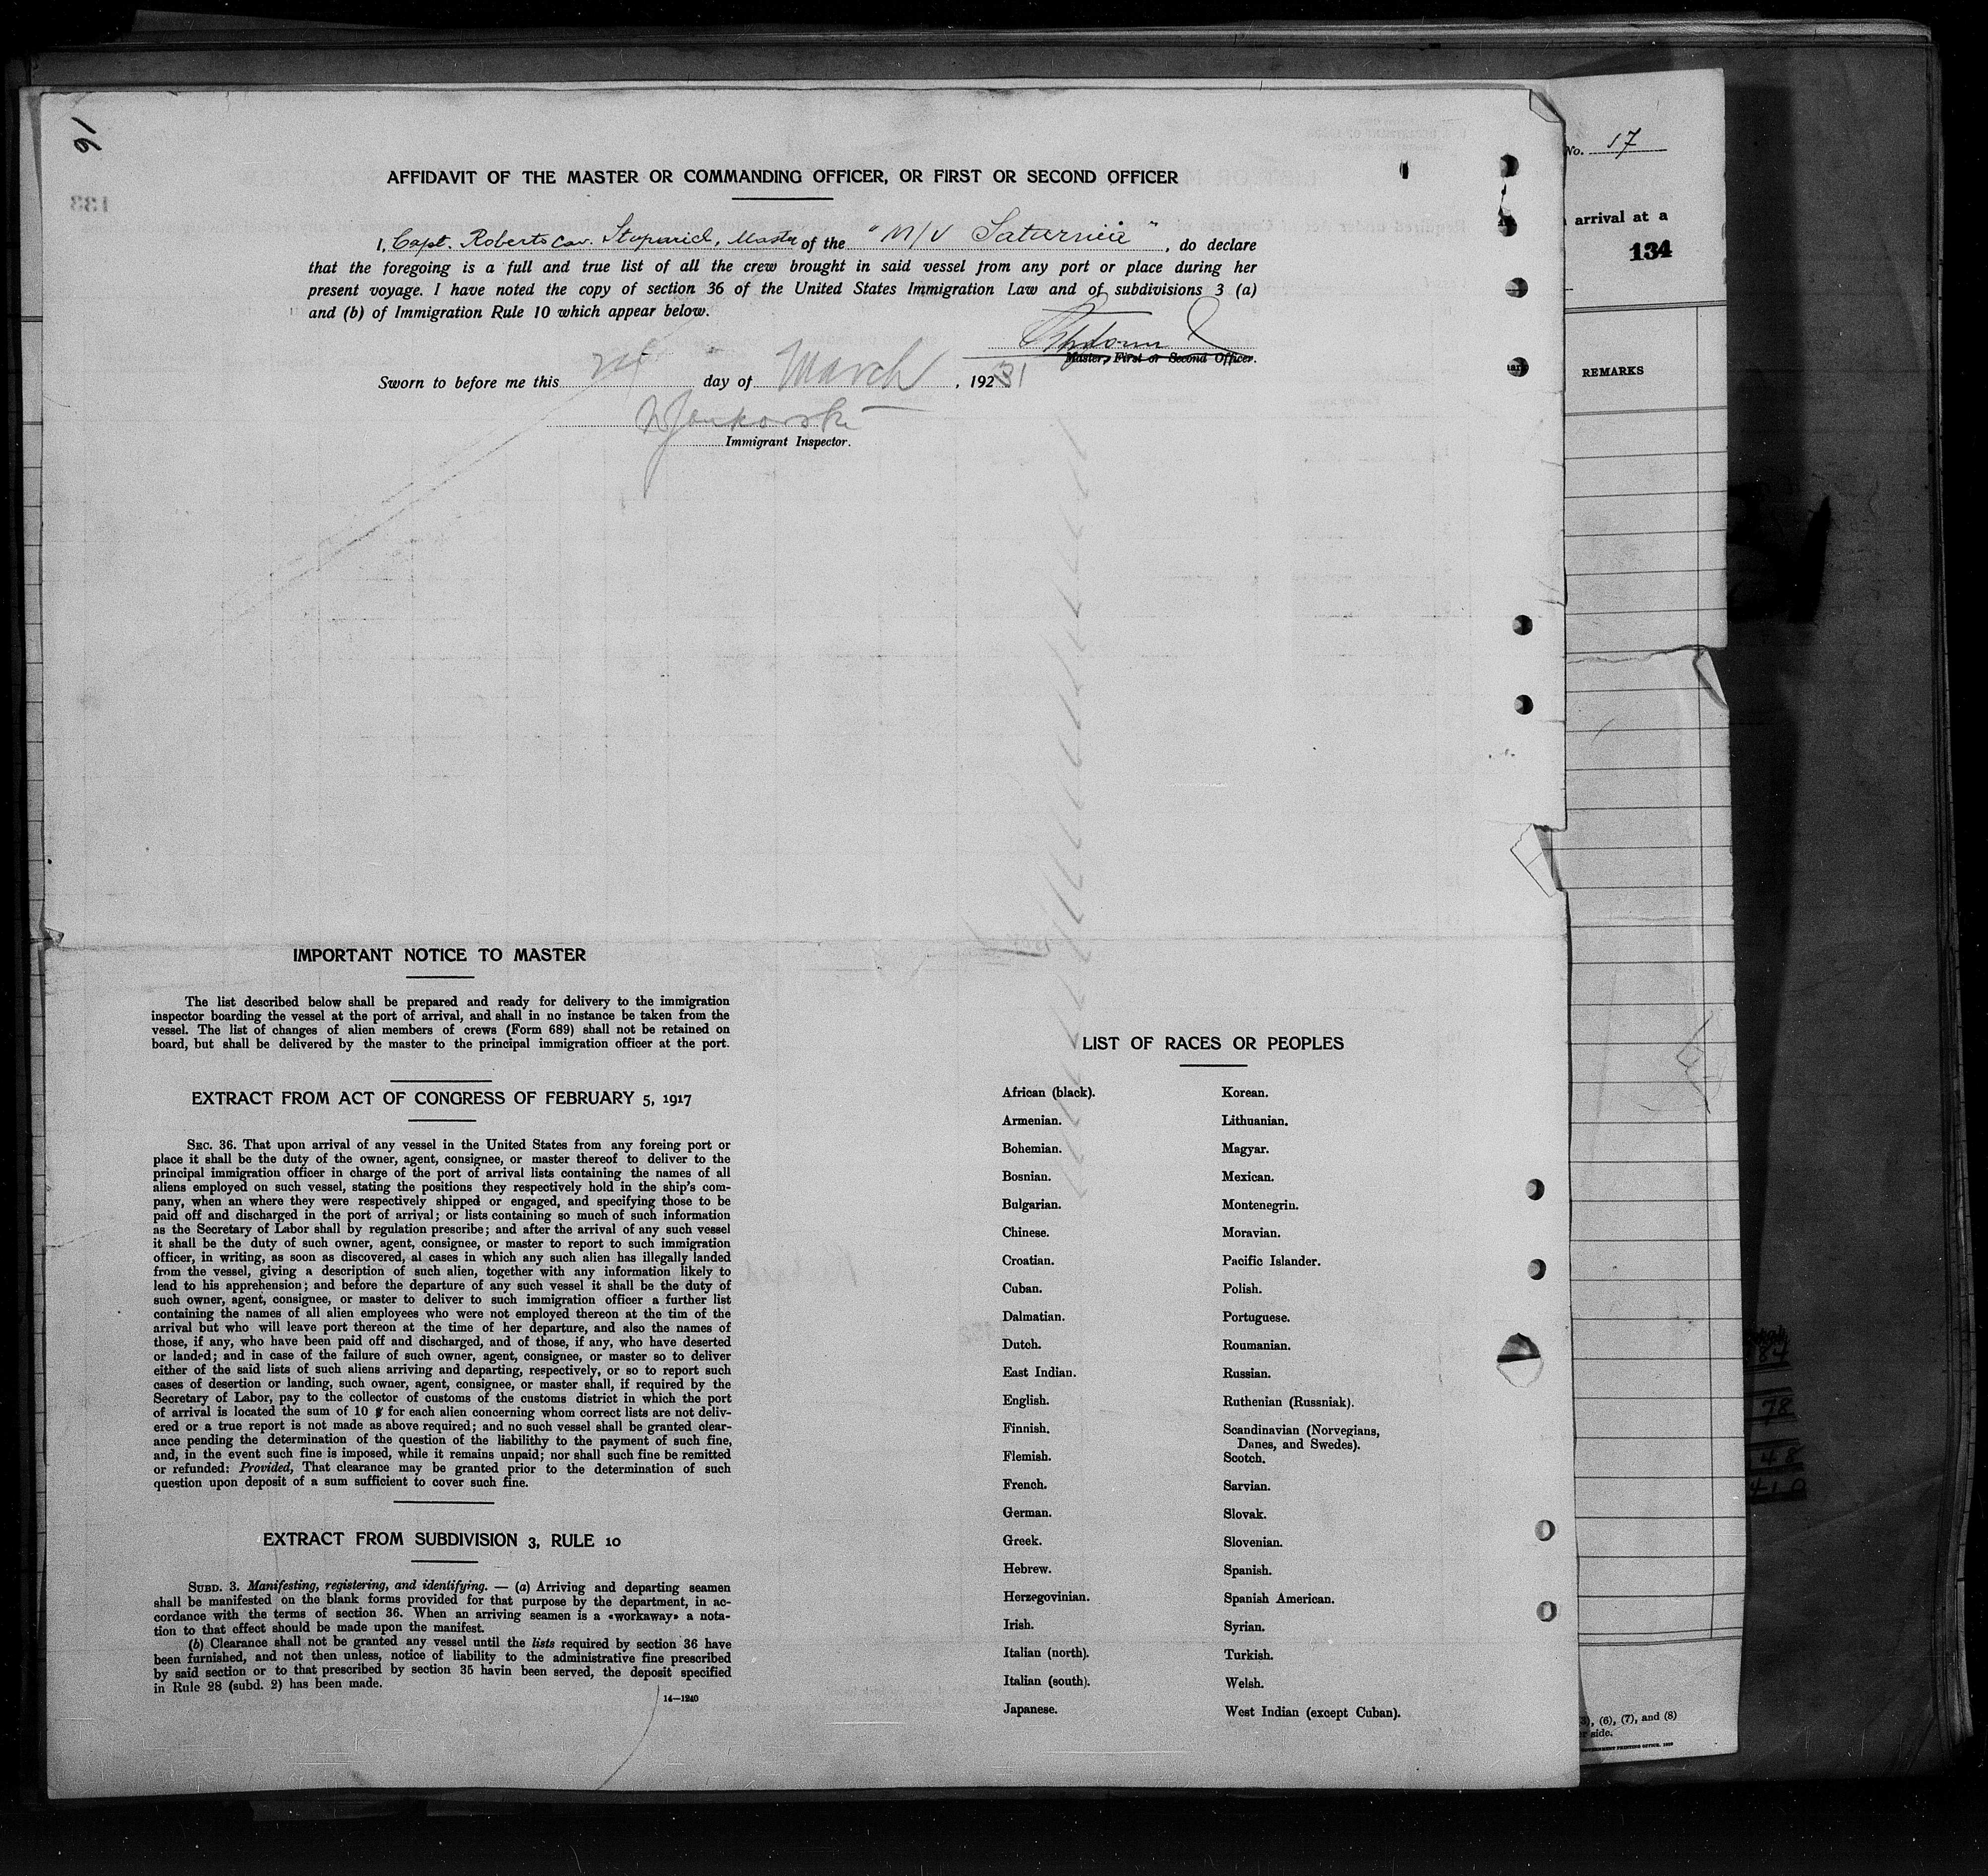 16
133
AFFIDAVIT OF THE MASTER OR COMMANDING OFFICER, OR FIRST OR SECOND OFFICER
I, Capt. Roberto Cav. Stuparich, Master of the "M/V Saturnia", do declare
that the foregoing is a full and true list of all the crew brought in said vessel from any port or place during her
present voyage. I have noted the copy of section 36 of the United States Immigration Law and of subdivisions 3 (a)
and (b) of Immigration Rule 10 which appear below.
Master, First or Second Officer.
Sworn to before me this day of March, 19231
Immigrant Inspector.
IMPORTANT NOTICE TO MASTER
The list described below shall be prepared and ready for delivery to the immigration
inspector boarding the vessel at the port of arrival, and shall in no instance be taken from the
vessel. The list of changes of alien members of crews (Form 689) shall not be retained on
board, but shall be delivered by the master to the principal immigration officer at the port.
EXTRACT FROM ACT OF CONGRESS OF FEBRUARY 5, 1917
SEC. 36. That upon arrival of any vessel in the United States from any foreing port or
place it shall be the duty of the owner, agent, consignee, or master thereof to deliver to the
principal immigration officer in charge of the port of arrival lists containing the names of all
aliens employed on such vessel, stating the positions they respectively hold in the ship's com-
pany, when an where they were respectively shipped or engaged, and specifying those to be
paid off and discharged in the port of arrival; or lists containing so much of such information
as the Secretary of Labor shall by regulation prescribe; and after the arrival of any such vessel
it shall be the duty of such owner, agent, consignee, or master to report to such immigration
officer, in writing, as soon as discovered, al cases in which any such alien has illegally landed
from the vessel, giving a description of such alien, together with any information likely to
lead to his apprehension; and before the departure of any such vessel it shall be the duty of
such owner, agent, consignee, or master to deliver to such immigration officer a further list
containing the names of all alien employees who were not employed thereon at the tim of the
arrival but who will leave port thereon at the time of her departure, and also the names of
those, if any, who have been paid off and discharged, and of those, if any, who have deserted
or landed; and in case of the failure of such owner, agent, consignee, or master so to deliver
either of the said lists of such aliens arriving and departing, respectively, or so to report such
cases of desertion or landing, such owner, agent, consignee, or master shall, if required by the
Secretary of Labor, pay to the collector of customs of the customs district in which the port
of arrival is located the sum of 10 $ for each alien concerning whom correct lists are not deliv-
ered or a true report is not made as above required; and no such vessel shall be granted clear-
ance pending the determination of the question of the liabilithy to the payment of such fine,
and, in the event such fine is imposed, while it remains unpaid; nor shall such fine be remitted
or refunded: Provided, That clearance may be granted prior to the determination of such
question upon deposit of a sum sufficient to cover such fine.
EXTRACT FROM SUBDIVISION 3, RULE 10
SUBD. 3. Manifesting, registering, and identifying. — (a) Arriving and departing seamen
shall be manifested on the blank forms provided for that purpose by the department, in ac-
cordance with the terms of section 36. When an arriving seamen is a «workaway» a nota-
tion to that effect should be made upon the manifest.
(b) Clearance shall not be granted any vessel until the lists required by section 36 have
been furnished, and not then unless, notice of liability to the administrative fine prescribed
by said section or to that prescribed by section 35 havin been served, the deposit specified
in Rule 28 (subd. 2) has been made.
14—1240
LIST OF RACES OR PEOPLES
African (black).
Armenian.
Bohemian.
Bosnian.
Bulgarian.
Chinese.
Croatian.
Cuban.
Dalmatian.
Dutch.
East Indian.
English.
Finnish.
Flemish.
French.
German.
Greek.
Hebrew.
Herzegovinian.
Irish.
Italian (north).
Italian (south).
Japanese.
Korean.
Lithuanian.
Magyar.
Mexican.
Montenegrin.
Moravian.
Pacific Islander.
Polish.
Portuguese.
Roumanian.
Russian.
Ruthenian (Russniak).
Scandinavian (Norvegians,
Danes, and Swedes).
Scotch.
Sarvian.
Slovak.
Slovenian.
Spanish.
Spanish American.
Syrian.
Turkish.
Welsh.
West Indian (except Cuban).
No. 17
arrival at a
134
REMARKS
(6), (7), and (8)
side.
GOVERNMENT PRINTING OFFICE
78
48
410